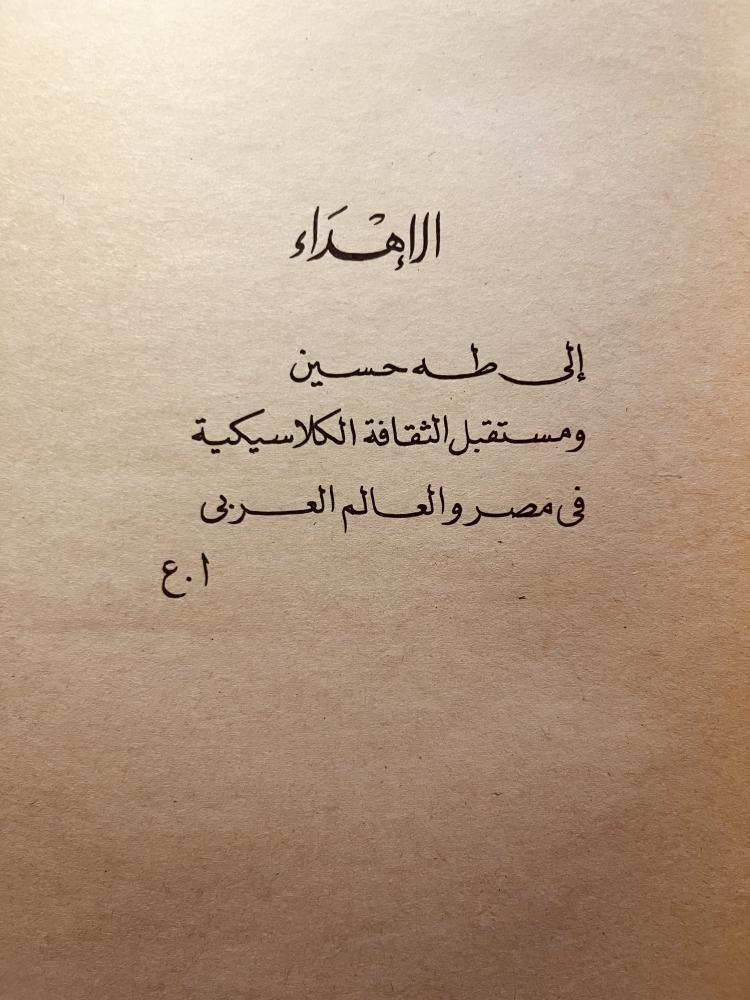 الإهْدَاء
إلى طه حسين
ومستقبل الثقافة الكلاسيكية
فى مصر والعالم العربى
ا.ع